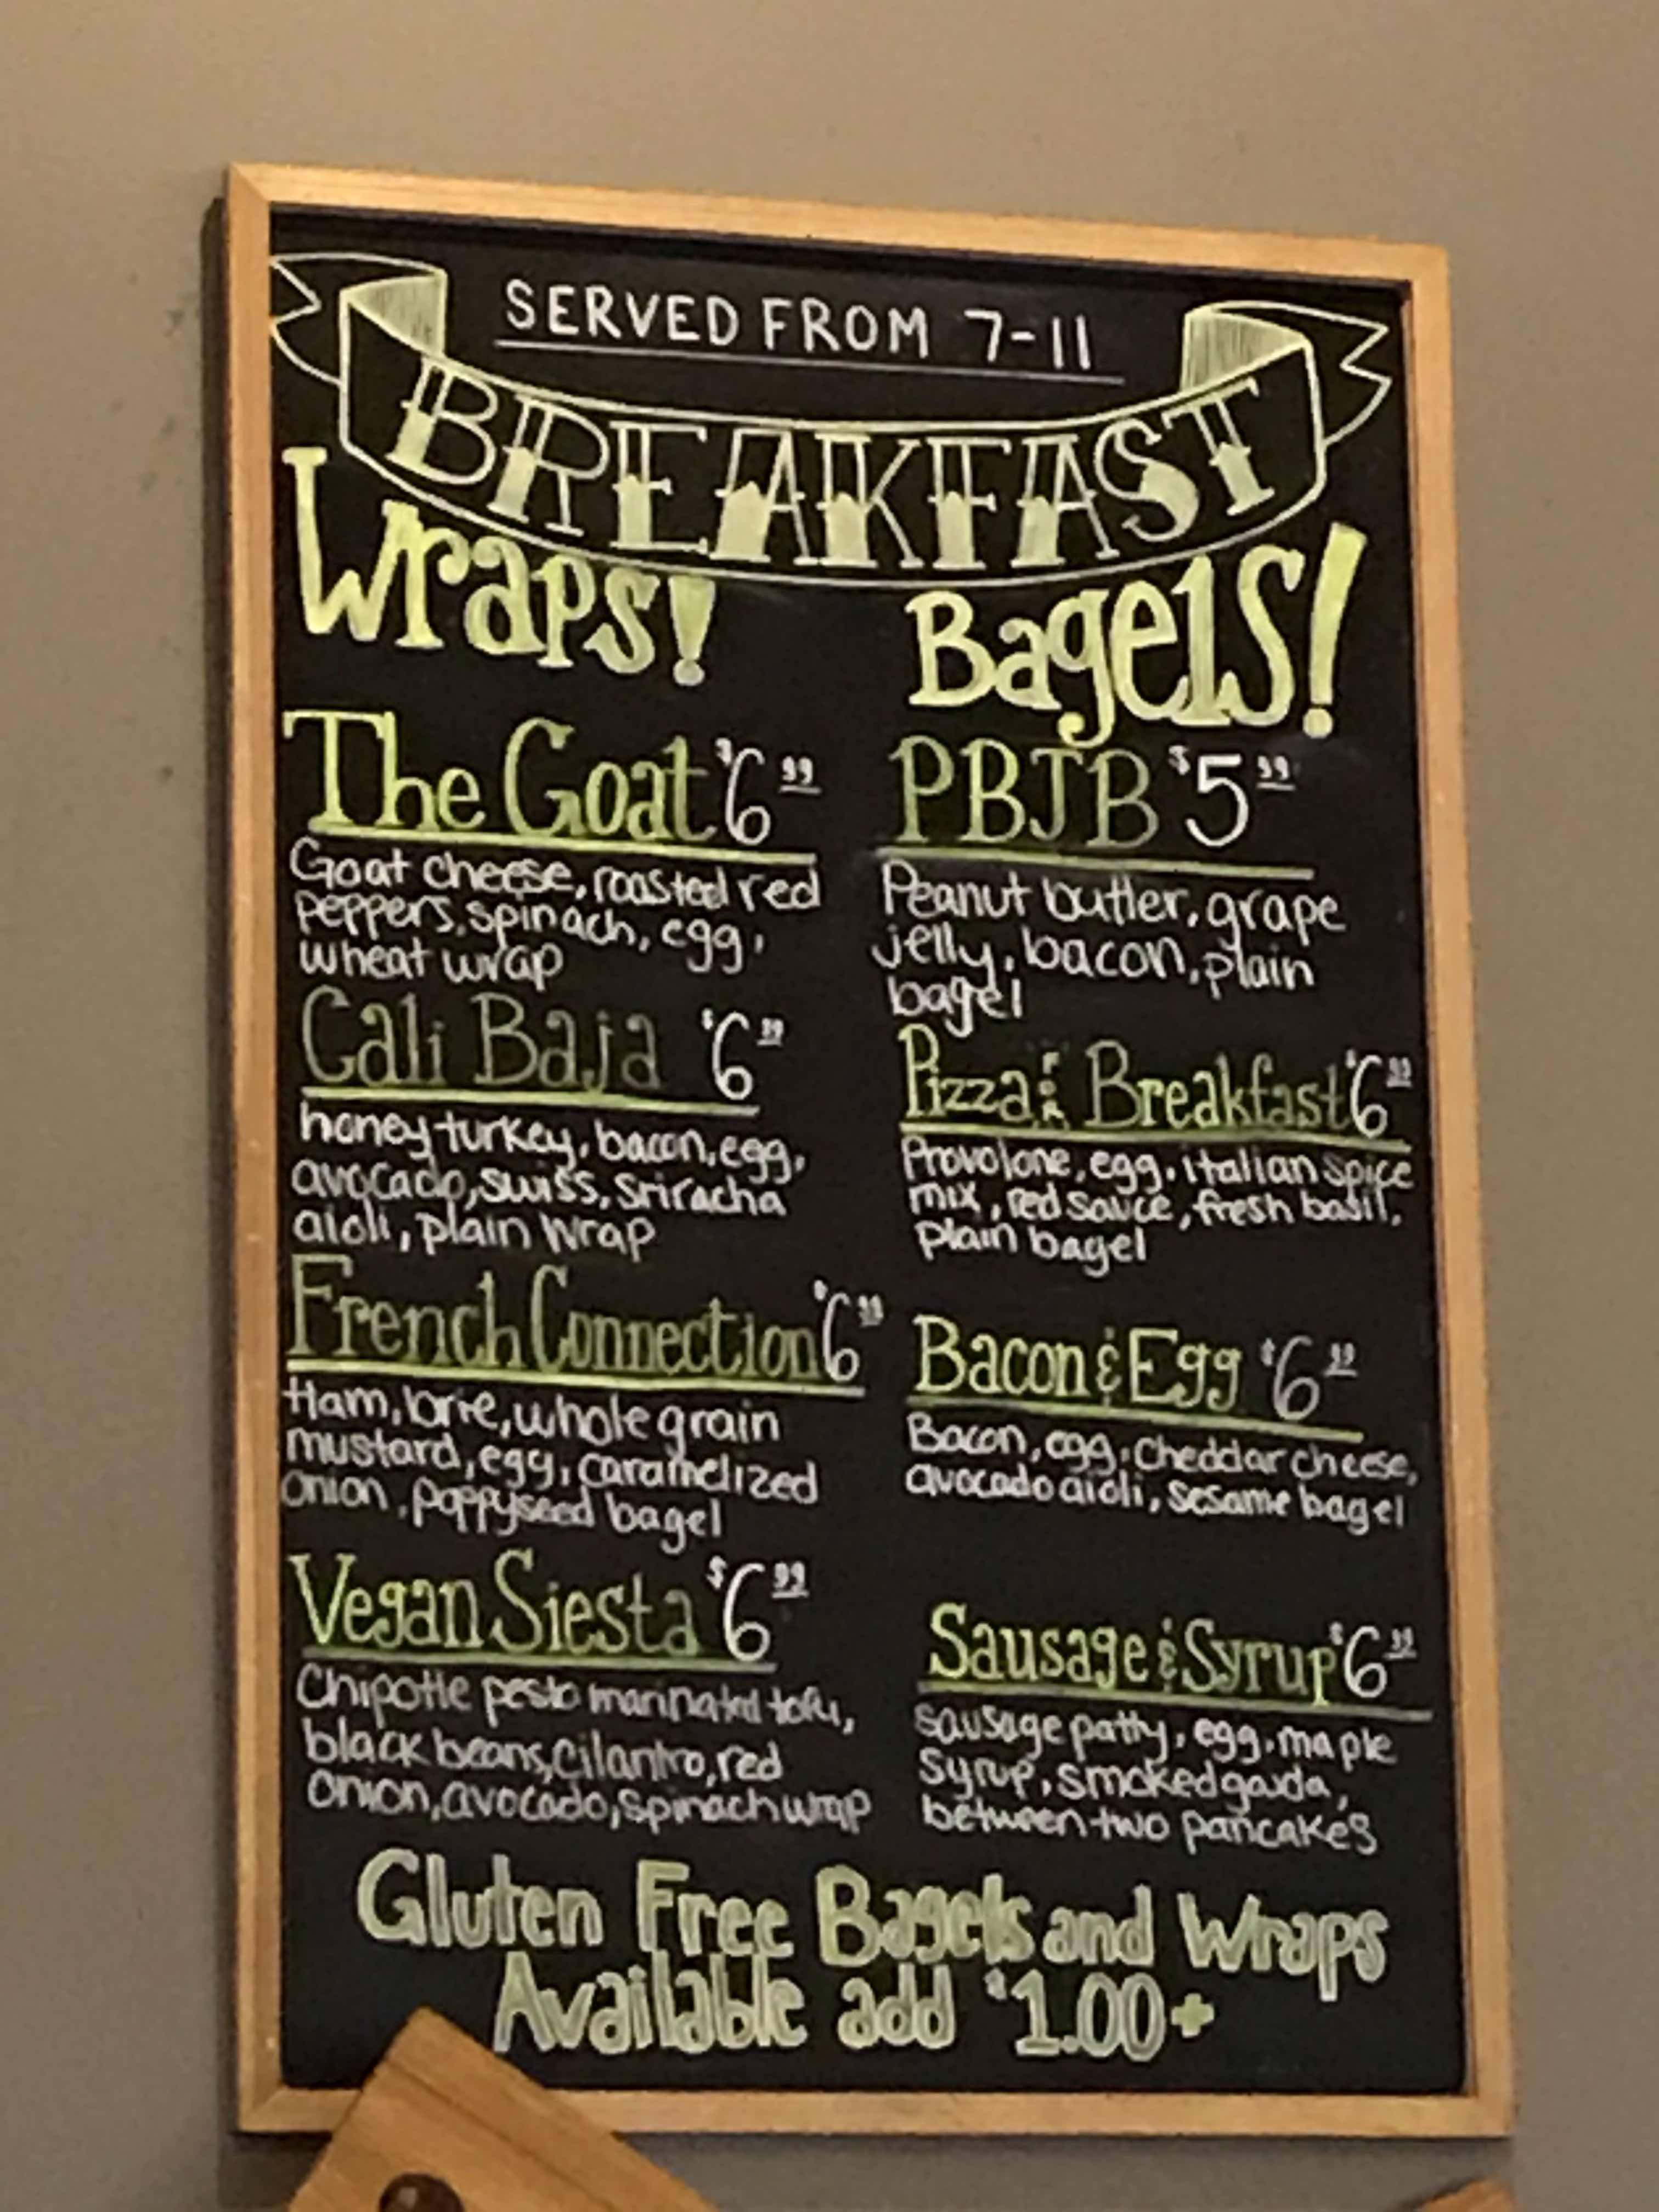 SERVED FROM 7-11
BREAKFAST
Wraps!
The Goat $6.99
Goat cheese, roasted red
peppers, spinach, egg,
wheat wrap
Cali Baja $6.99
honey turkey, bacon, egg,
avocado, swiss, sriracha
aioli, plain wrap
French Connection $6.99
Ham, brie, whole grain
mustard, egg, caramelized
onion, poppyseed bagel
Vegan Siesta $6.99
Chipotle pesto marinated tofu,
black beans, cilantro, red
onion, avocado, spinach wrap
Bagels!
PBJB $5.99
Peanut butter, grape
jelly, bacon, plain
bagel
Pizza FOR Breakfast $6.99
Provolone, egg, italian spice
mix, red sauce, fresh basil,
plain bagel
Bacon & Egg $6.99
Bacon, egg, cheddar cheese,
avocado aioli, sesame bagel
Sausage & Syrup $6.99
sausage patty, egg, maple
syrup, smoked gouda,
between two pancakes
Gluten Free Bagels and Wraps
Available add $1.00+